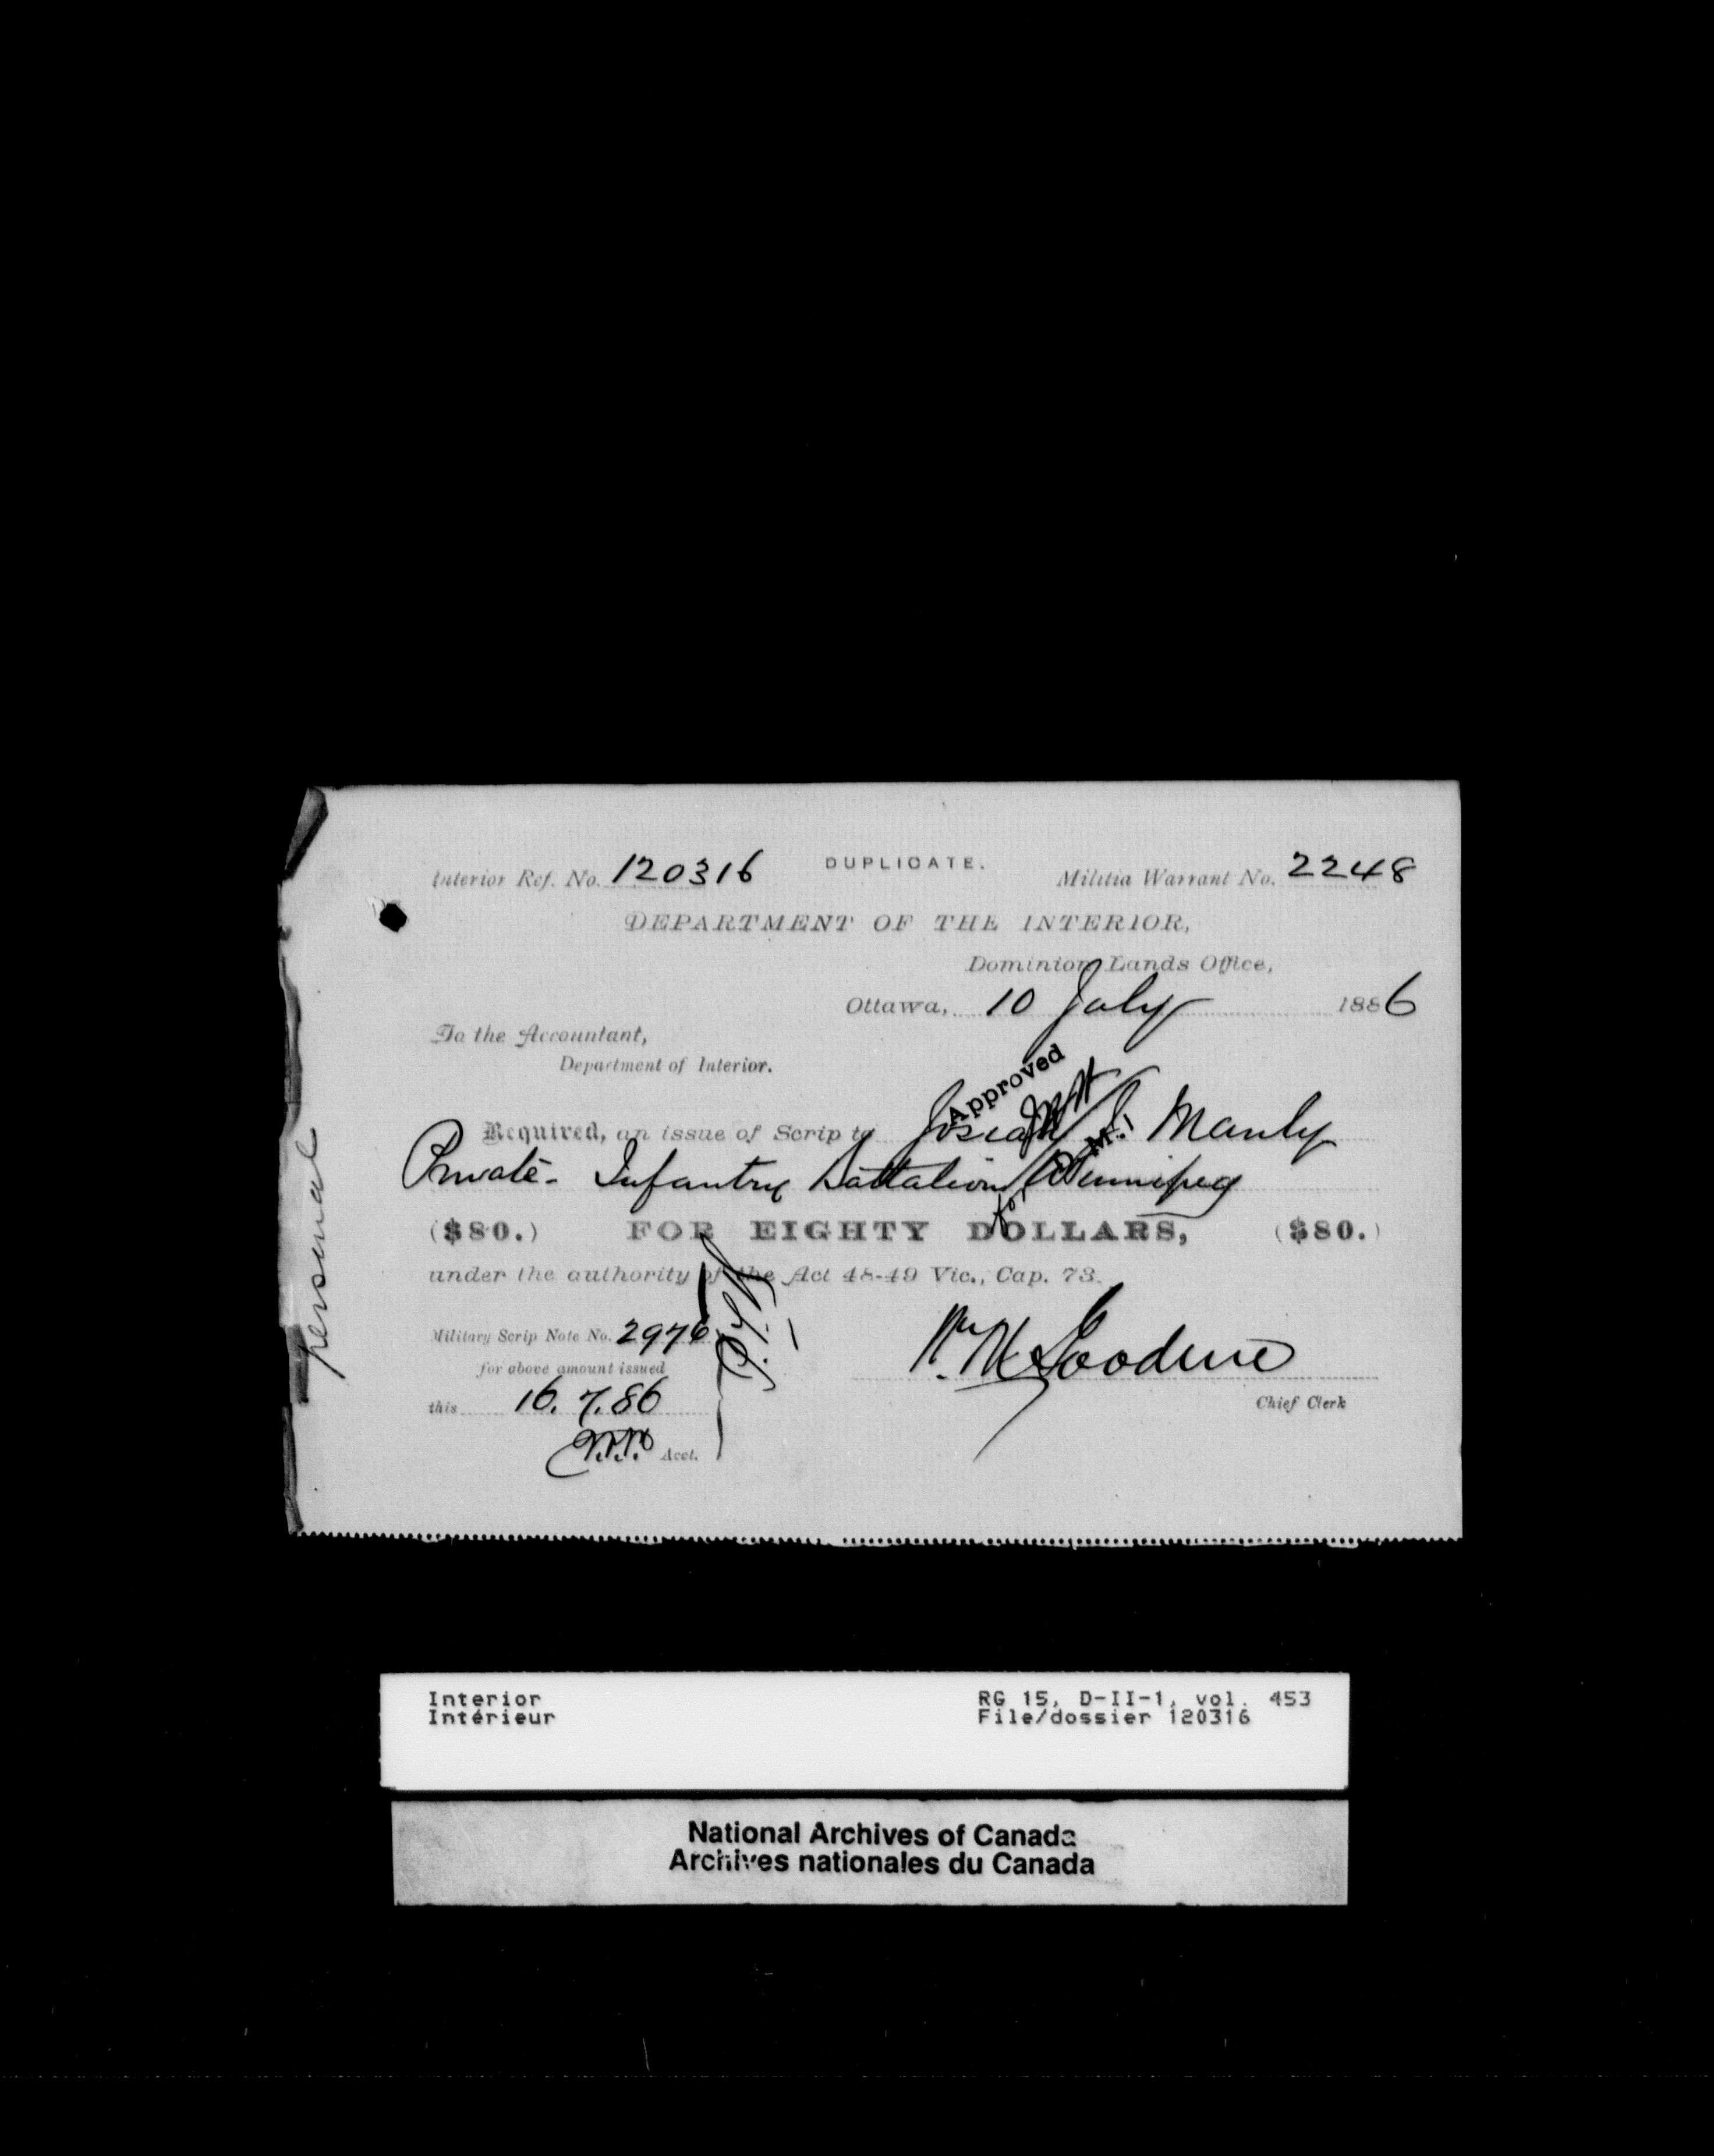 Interior Ref. No. 120316
DUPLICATE.
Militia Warrant No. 2248
DEPARTMENT OF THE INTERIOR,
Dominion Lands Office,
Ottawa, 10 July 1886
To the Accountant,
Department of Interior.
Approved
Required, an issue of Scrip to Josiah J. Manly
Private - Infantry Battalion Winnipeg
for D. M. I
($80.) FOR EIGHTY DOLLARS, ($80.)
under the authority of the Act 48-49 Vic., Cap. 73.
Military Scrip Note No. 2976
for above amount issued
this 16. 7. 86
Acct.
Goodeve
Chief Clerk
personal
Interior
Intérieur
RG 15, D-II-1, vol. 453
File/dossier 120316
National Archives of Canada
Archives nationales du Canada